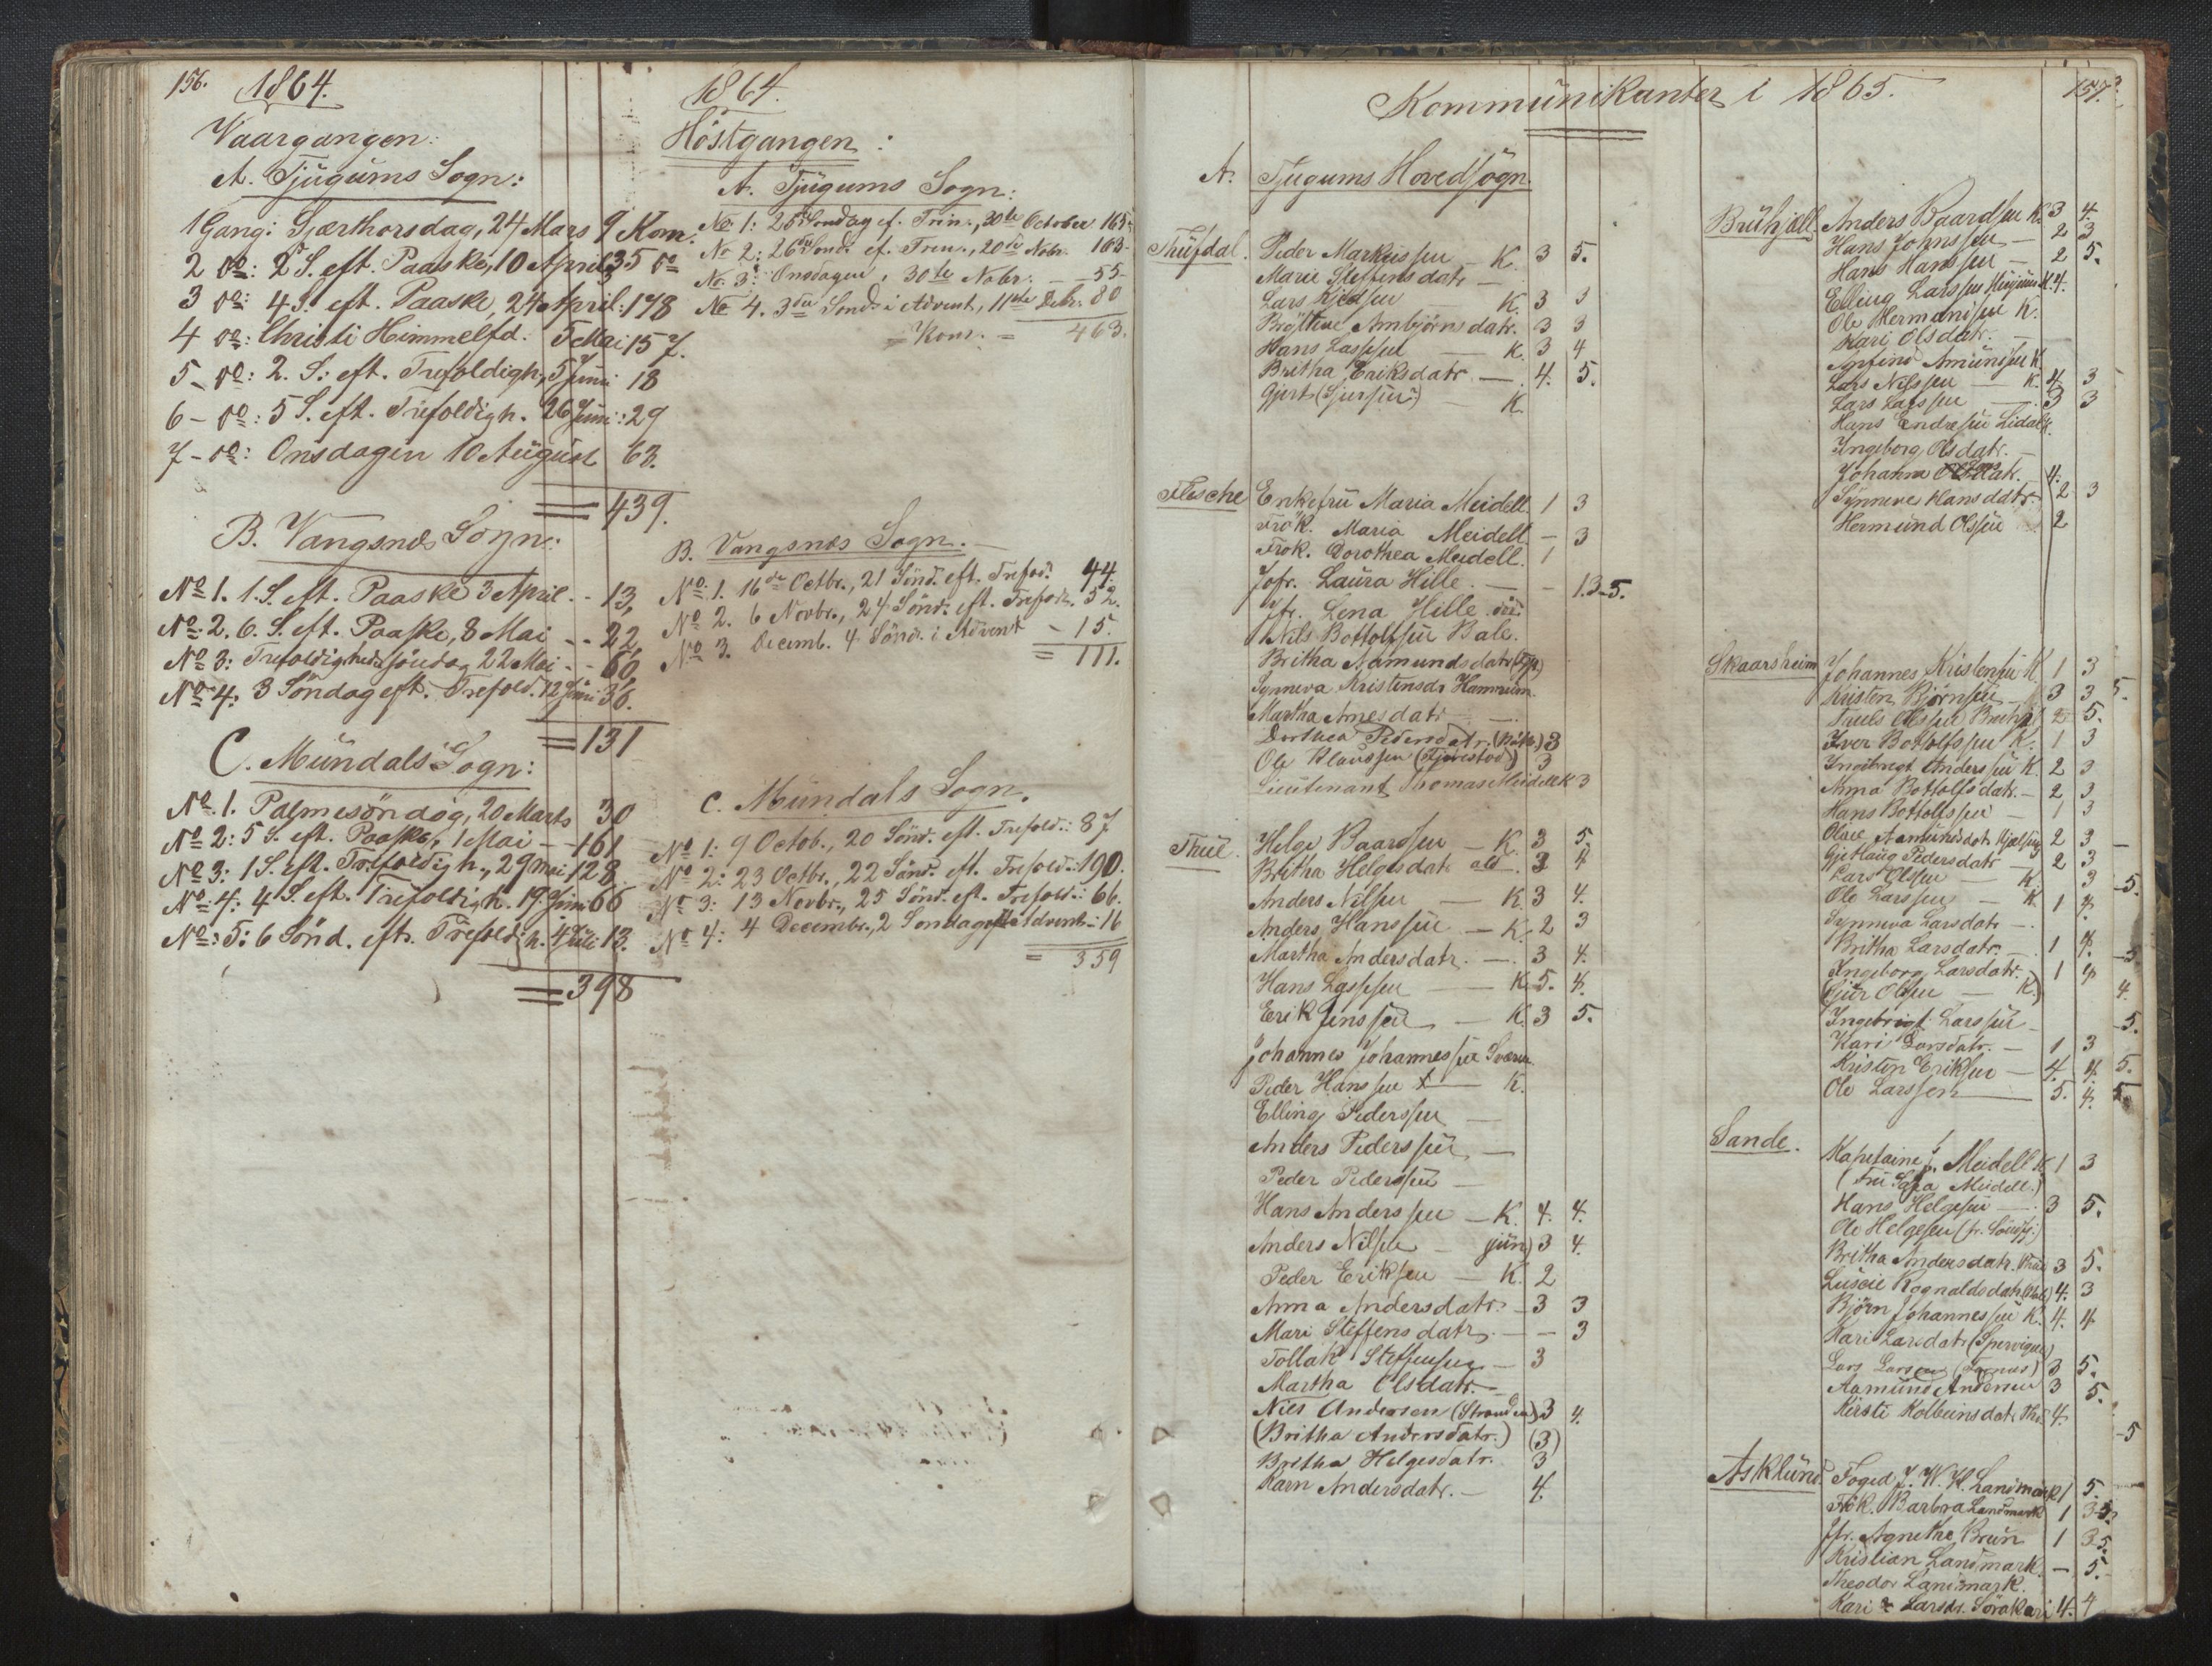 156. 1864.
Vaargangen:
A. Tjugums Sogn:
1 Gang: Skjærthorsdag, 24 Mars 9 Kom.
2 do: 2 S. eft. Paaske, 10 April 35 do
3 do: 4 S. eft. Paaske, 24 April: 178
4 do: Christi Himmelfd. 5 Mai 157.
5 - do: 2. S. eft. Trefoldigh., 5 Juni 18
6 - do: 5 S. eft. Trefoldigh. 26 Juni: 29
7 - do: Onsdagen 10 August 63.
= 439.
B. Vangsnes Sogn:
No 1. 1. S. eft. Paaske 3 April - - 13,
No 2. 6. S. eft. Paaske, 8 Mai - - 22,
No 3: Trefoldighedssöndag 22 Mai - - 60,
No 4: 3 Söndag eft. Trefold. 12 Juni 36.
= 131
C. Mundals Sogn:
No 1. Palmesöndag, 20 Marts 30
No 2: 5 S. eft. Paaske, 1 Mai - - 161
No 3: 1 S. eft. Trefoldigh., 29 Mai 128
No 4: 4 S. eft. Trefoldigh. 19 Juni 66
No: 5: 6 Sönd. eft. Trefoldigh. 4 Juli 13.
= 398
1864.
Höstgangen:
A. Tjugums Sogn:
No 1: Sondag ef. Trin., 30te October 165.
No 2: 26de Sond. ef. Tren., 20de Nobr. 163.
No 3: Onsdagen, 30te Nobr. - 55
No 4. 3die Sond. i Advent, 11te Debr. 80
= Kom. = 463.
B. Vangsnes Sogn.
No 1. 16de Octbr., 21 Sönd. eft. Trefod. 44.
No 2. 6 Novbr., 24 Sönd. eft. Trefod. 52.
No 3. Decemb. 4 Sönd. i Advent - 15.
= 111.
C. Mundals Sogn.
No 1: 9 Octob., 20 Sönd. eft. Trefold.: 87
No 2: 23 Octbr., 22 Sönd. eft. Trefold.: 190.
No 3: 13 Novbr., 25 Sönd. eft. Trefold.: 66.
No 4: 4 Decembr., 2 Sondag Advent - 16
= 359
Kommunikanter i 1865.
157.
A. Tjugums Hovedsogn.
Thufdal. Peder Markussen - K. 3 5.
Marie Steffensdatr -
Lars - K. 3 3
Ambjörnsdatr. 3 3
Hans Lassesen - K. 3 4
Britha Eriksdatr - 4. 5.
Gjert (Sjursen?) - K.
Flesche Enkefru Maria Meidell. 1 3
Frök. Maria Meidell - 3
Frok. Dorothea Meidell. 1
Jofr. Laura Hille. - - 1.3-5.
Jfr. Lena Hille
Nils Bottolfsen Bale.
Britha Aamundsdatr
Synneva Kristensdr Hamrum.
Martha Arnesdatr -
Dorthea Pedersdatr. 3
Ole Klaussen 3
Lieutenant Thomas Meidell K 3
Thue. Helge Baardsen - K. 3 5
Britha Helgesdatr 3 4
Anders Nilsen - K. 3 4.
Anders Hanssen - K. 2 3
Martha Andersdatr. - 3 4.
Hans Lassesen - K. 5. 4.
Erik Jenssen - K. 3 5.
Johannes Johannessen
Peder Hanssen - K.
Elling Pederssen -
Anders Pederssen -
Peder Pederssen -
Hans Anderssen - K. 4. 4.
Anders Nilsen - jun) 3 4.
Peder Eriksen - K. 2
Anna Andersdatr - 3 3
Mari Steffensdatr. - - 3
Tollak Steffensen - 3
Martha Olsdatr. -
Nils Andersen (Stranden) 3 4.
(Britha Andersdatr.) (3)
Britha Helgesdatr. 3
Karn Andersdatr. - 4.
Bruhjell Anders Baardsen K. 3 4.
Hans Johnssen - 2 3
Hans Hanssen - 2 5.
Elling Larssen K. 4.
Ole Hermandsen K.
Kari Olsdatr. -
Amundsen K.
Lars Nilssen - K. 4. 3
Lars Larssen - 3 3
Hans Endresen
Ingeborg Olsdatr. -
Johanna 4.
Synneve Hansdatr. 2 3
Hermund Olssen 2
Skaarsheim Johannes Kristensen K. 1 3
Kristen Bjørnsen - 3 3 5.
Truls Olssen 2 5.
Iver Bottolfssen K. 1 3
Ingebregt Anderssen K. 2 3
Anna Bottolfsdatr. - 2 3
Hans Bottolfssen - 1 3
Olave Aamundsdatr 2 3 -
Gjetlaug Pedersdatr - 2 3
Lars Olssen - K. 3 -5.
Ole Larssen - K. 1 4.
Synneva Larsdatr -
Britha Larsdatr. - 1 4. -5
Ingeborg Larsdatr. - 1 4
(Sjur Olssen - K.) 4.
Ingebrigt Larssen - -5.
Kari Larsdatr. - 1 3
Kristen Eriksen - 4. 4. 5.
Ole Larssen 5. 4. 5
Sande. Kapetaine Meidell K 1 3
(Fru Meidell.)
Hans Helgesen - 3 5.
Ole Helgesen
Britha Andersdatr. 3 5.
Luscie Rognaldsdatr 4. 3
Bjørn Johannessen K. 4. 4
Kari Larsdatr
Lars Larsen 3 5.
Aamund Andersen 3 5.
Kirsti Kolbeinsdatr 4. -5
Asklund Foged J. W. K. Landmark 1 5.
Frk. Barbra Landmark 1 3-5.
Jfr. Agnethe Brun 1 3-5.
Kristian Landmark. - 5.
Theodor Landmark.
Kari Larsdr. 4. 4